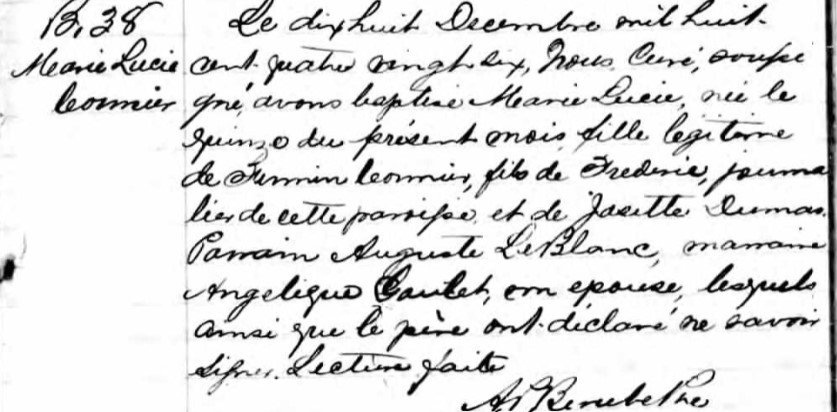 B. 38
Marie Lucie
Cormier
Le dix huit Decembre mil huit
cent quatre vingt six, Nous, Curé, soussi
gné, avons baptisé Marie Lucie, née le
quinze du présent mois, fille legitime
de Firmin Cormier, fils de Frederic, journa
lier de cette paroisse, et de Josette Dumas.
Parrain Auguste LeBlanc, marraine
Angelique Goulet, son epouse, lesquels
ainsi que le père ont déclaré ne savoir
signer. Lecture faite